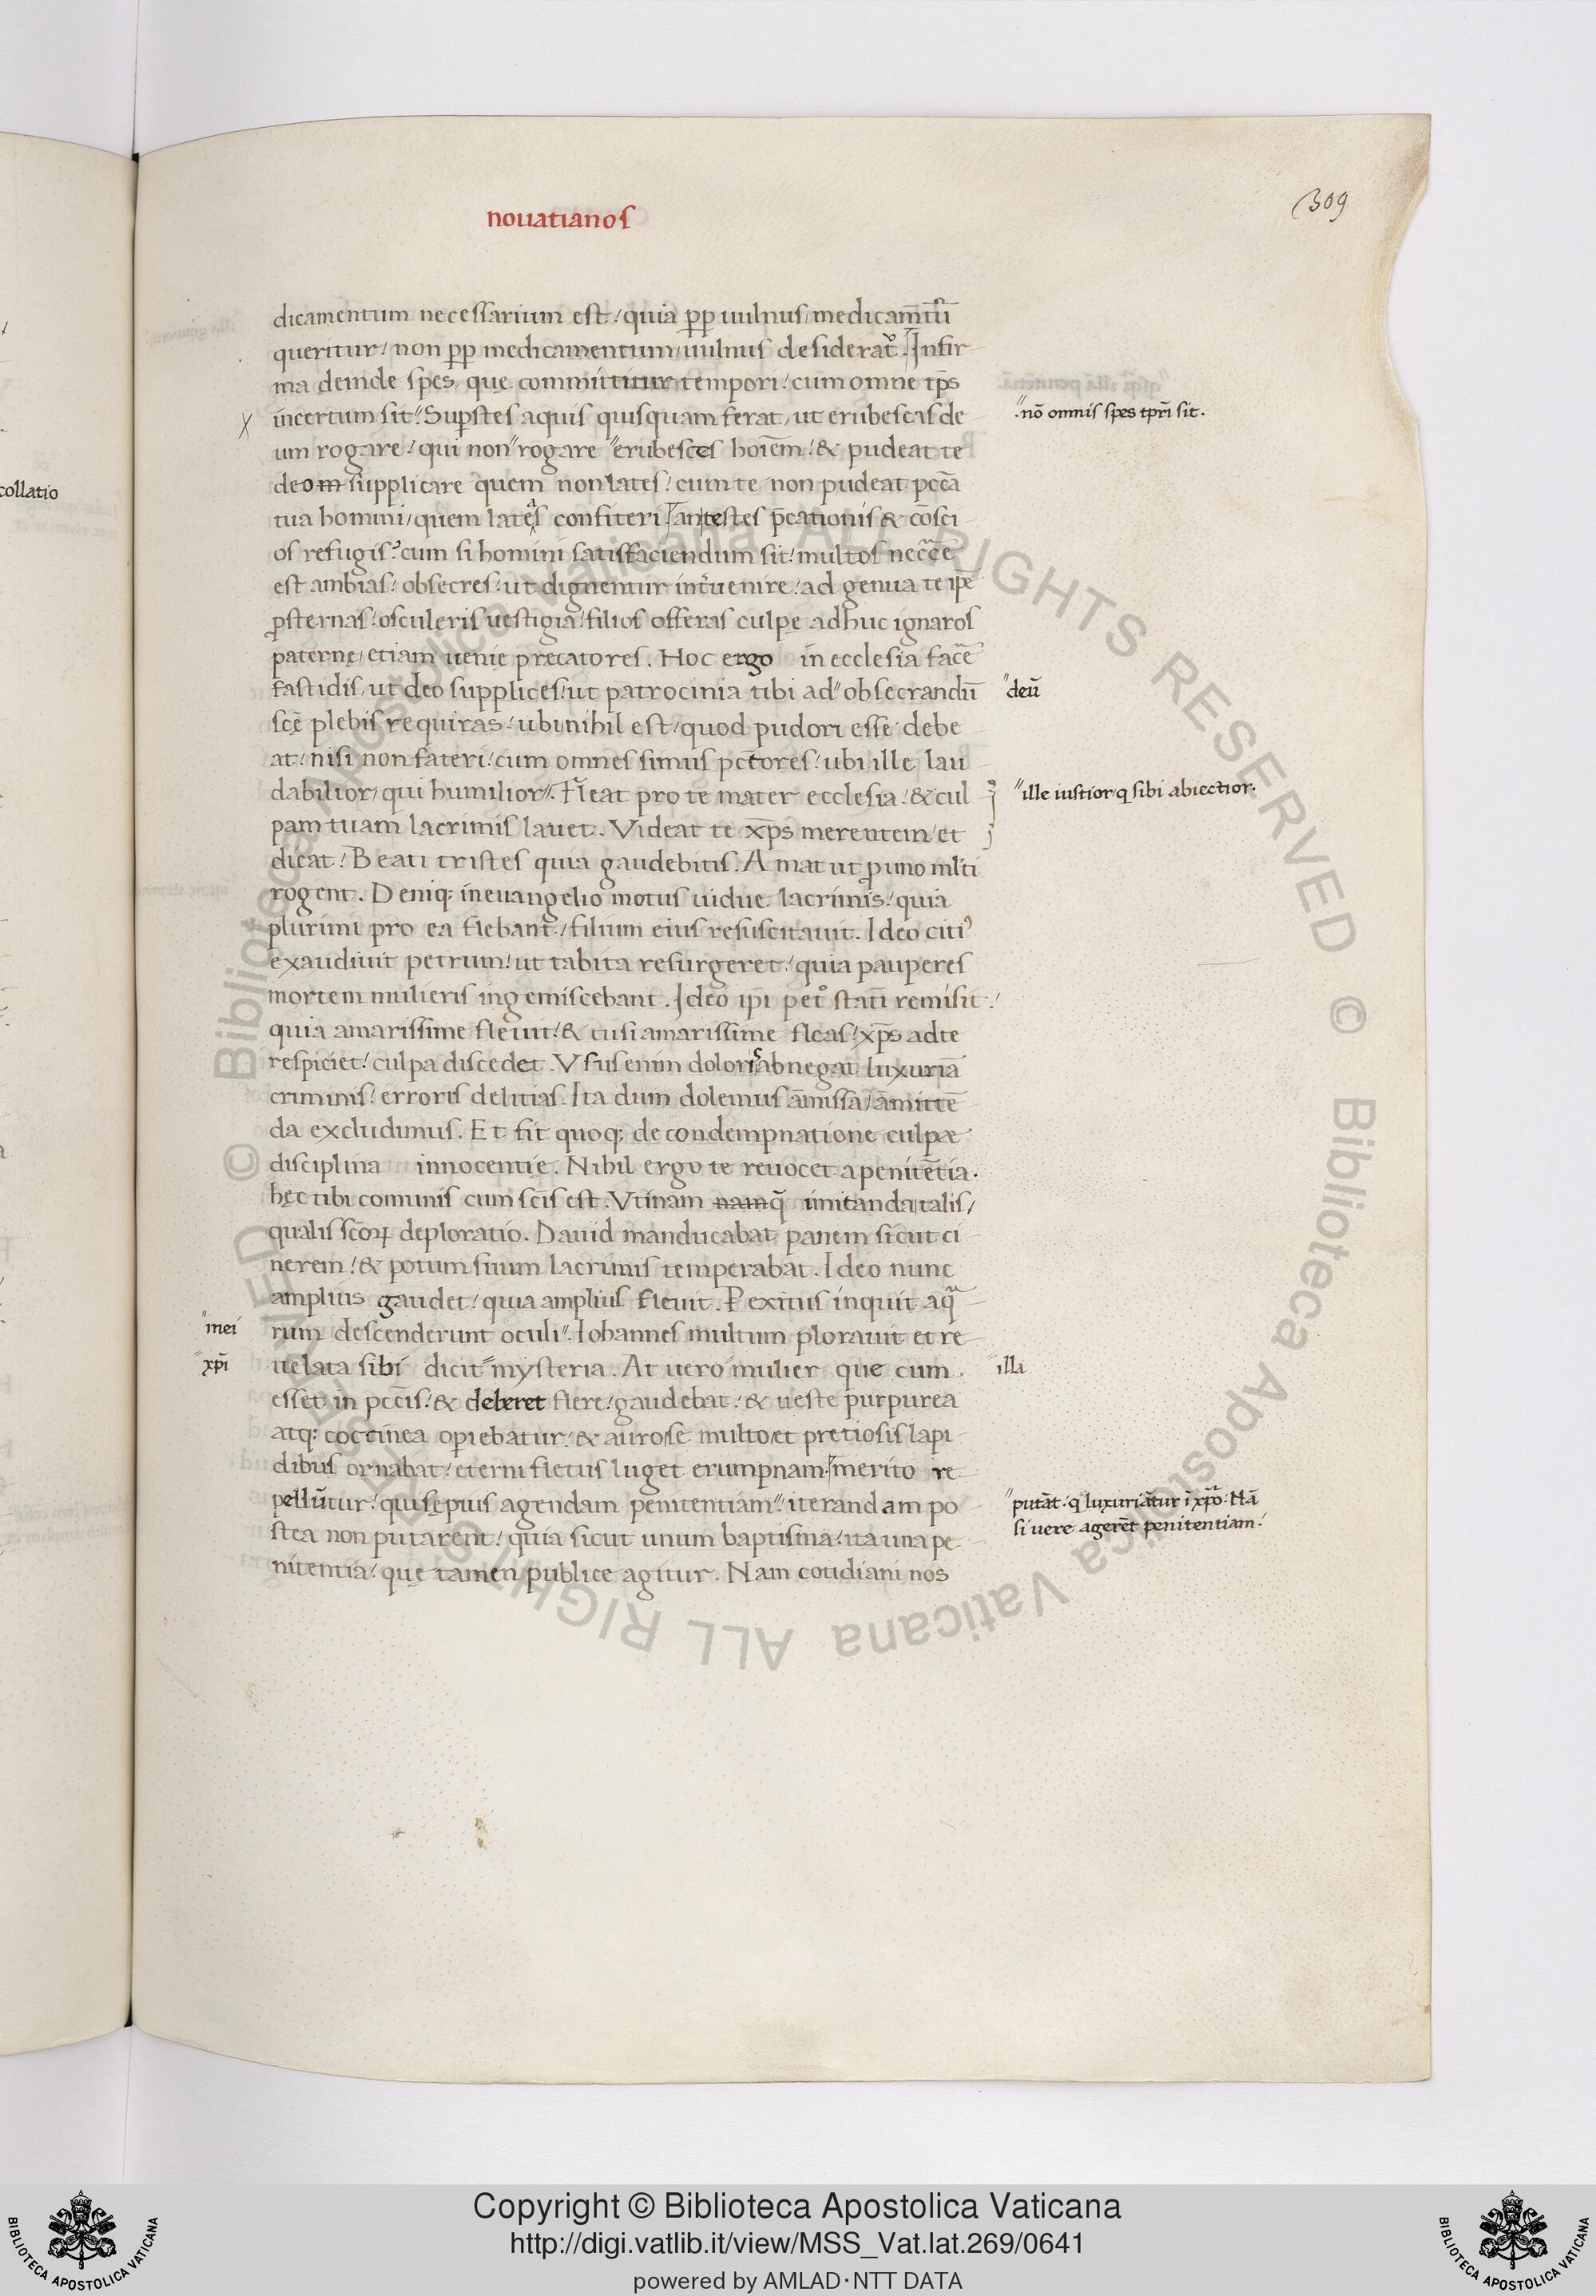 nouatianos
309
dicamentum necessarium est / quia p̄p̄ uulnus / medicam̄tū
queritur / non p̄p̄ medicamentum / uulnus desiderat᷑. Infir
ma deinde spes, quę committitur tempori / cum omne tp̄s
incertum sit". Sup̄stes aquis quisquam ferat, ut erubescas de
.nō omnis spes tp̄ri sit.
um rogare / qui non" rogare "erubesces hoīem / & pudeat te
deo m supplicare quem non lates / cum te non pudeat pccā
tua homini / quem lateas confiteri / an testes p̄cationis & cōsci
os refugis? cum si homini satisfaciendum sit / multos neccē
est ambias / obsecres / ut dignentur int̄uenire / ad genua te ip̄e
ꝓsternas / osculeris uestigia / filios offeras culpę adhuc ignaros
paternę / etiam uenię precatores. Hoc ergo in ecclesia facē
fastidis, ut deo supplices / ut patrocinia tibi ad" obsecrandū
"deū
scę̄ plebis requiras / ubi nihil est / quod pudori esse debe
at / nisi non fateri / cum omnes simus pctōres / ubi ille lau
dabilior / qui humilior". Fleat pro te mater ecclesia / & cul
"ille iustior q sibi abiectior.
pam tuam lacrimis lauet. Videat te xp̄s merentem / et
dicat / Beati tristes quia gaudebitis. Amat ut ꝓ uno ml̄ti
rogent. Deniq; in euangelio motus uidue lacrimis / quia
plurimi pro ea flebant / filium eius resuscitauit. Ideo citiꝰ
exaudiuit petrum / ut tabita resurgeret / quia pauperes
mortem mulieris ingemiscebant. Ideo ip̄i pet᷑o statī remisit /
quia amarissime fleuit / & tu si amarissime fleas / xp̄s ad te
respiciet / culpa discedet. Vsus enim doloris abnegat luxuriā
criminis / erroris delitias. Ita dum dolemus āmissa / āmittē
da excludimus. Et fit quoq; de condempnatione culpæ
disciplina innocentię. Nihil ergo te reuocet a penitētia.
hęc tibi comunis cum scīs est. Vtinam namq̄ imitanda talis /
qualis scōꝝ deploratio. Dauid manducabat panem sicut ci
nerem / & potum suum lacrimis temperabat. Ideo nunc
amplius gaudet / quia amplius fleuit. P exitus inquit aqua
"mei
rum descenderunt oculi". Iohannes multum plorauit et re
"xp̄i
uelata sibi dicit" mysteria. At uero "mulier que cum
"illa
esset in pccīs / & deberet flere / gaudebat / & ueste purpurea
atq; coccinea opiebatur / & auro se multo et pretiosis lapi
dibus ornabat / eterni fletus luget erumpnam / merito re
pellūtur / qui sępius agendam penitentiam" iterandam po
"putāt / q luxuriāt᷑ur ī xp̄o. Nā
stea non putarent / quia sicut unum baptisma / ita una pe
si uere agerēt penitentiam /
nitentia / quę tamen publice agitur. Nam cotidiani nos
collatio
Copyright © Biblioteca Apostolica Vaticana
http://digi.vatlib.it/view/MSS_Vat.lat.269/0641
powered by AMLAD·NTT DATA
BIBLIOTECA APOSTOLICA VATICANA
BIBLIOTECA APOSTOLICA VATICANA
© Biblioteca Apostolica Vaticana ALL RIGHTS RESERVED © Biblioteca Apostolica Vaticana ALL RIGHTS RESERVED